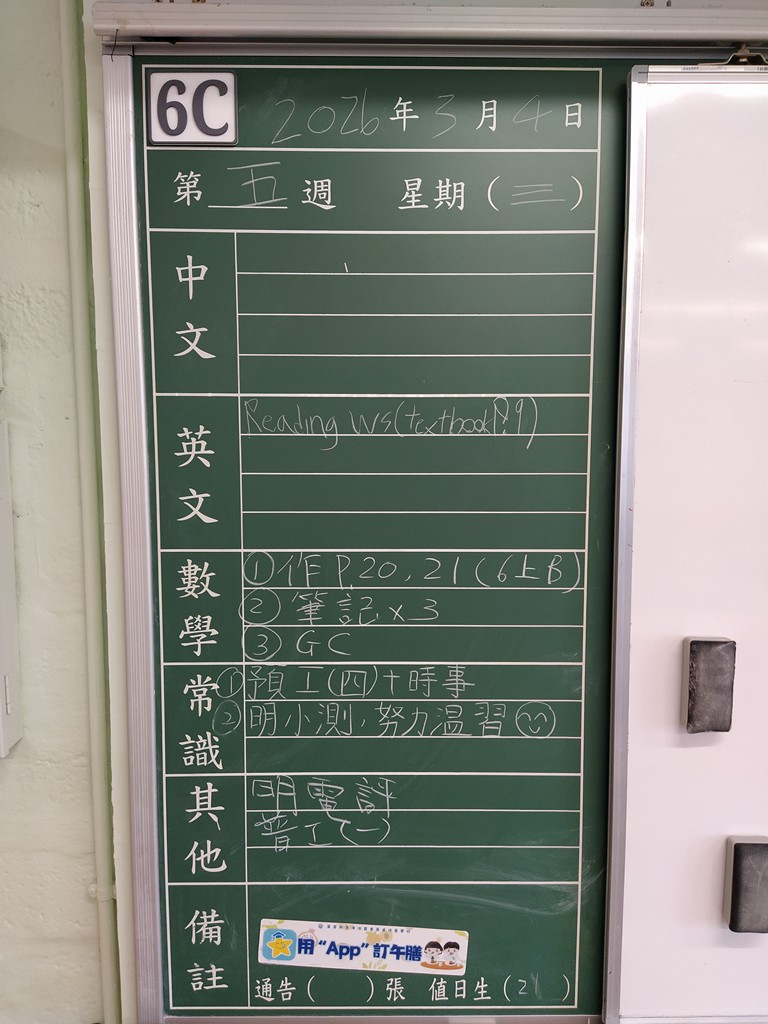 6C 2026年3月4日
第五週 星期(三)
中文
英文
Reading WS(textbook P.9)
數學
①作P.20,21(6上B)
②筆記x3
③GC
常識
①預工(四)+時事
②明小測,努力温習
其他
明電評
普工(一)
備註
用“App”訂午膳
通告( )張 值日生(21 )